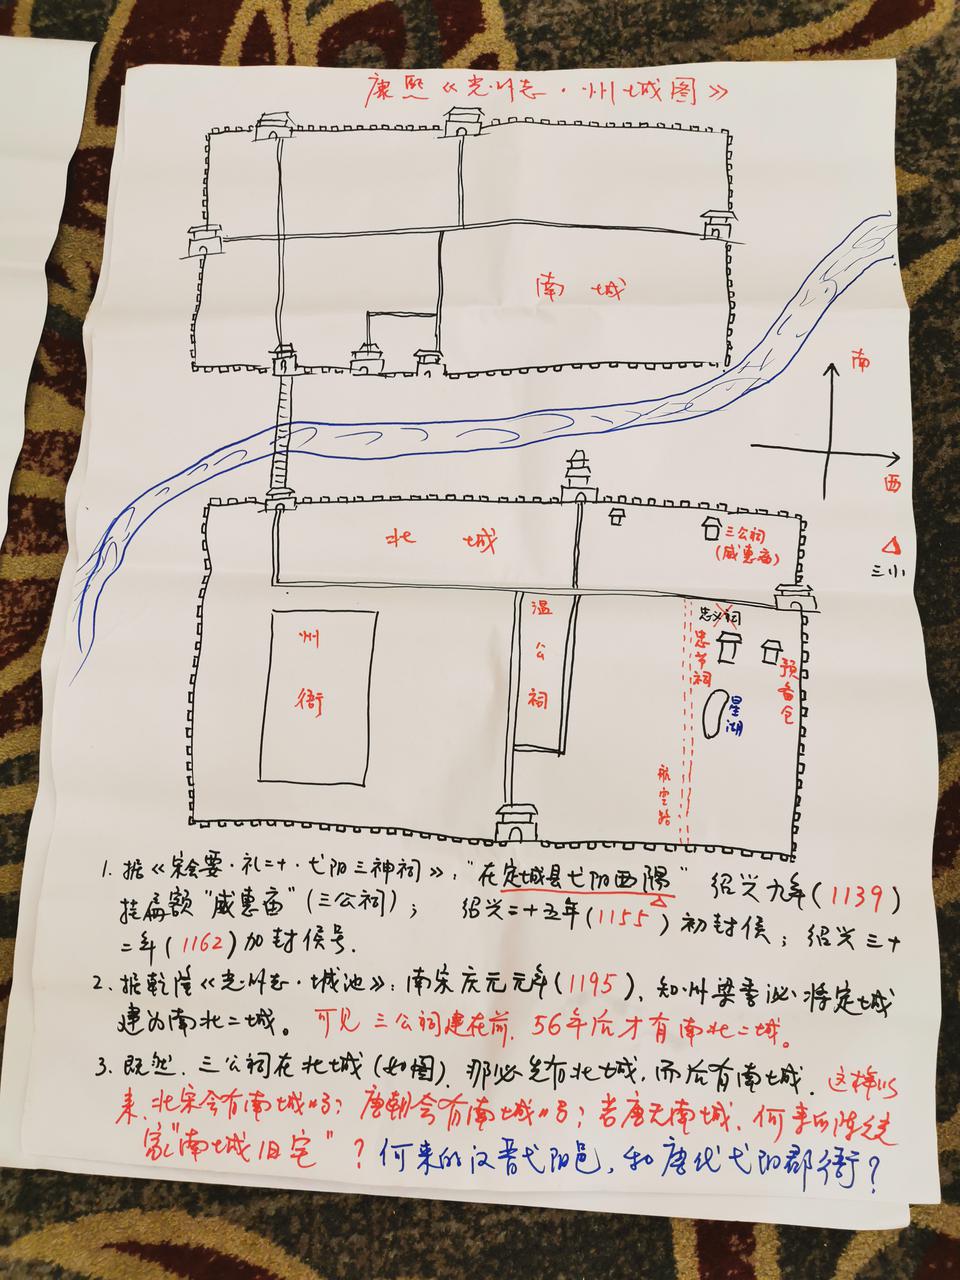 康熙《光州志·州城图》
南城
南
西
三小
北城
三公祠
(威惠庙)
州衙
温公祠
忠义祠
忠节祠
预备仓
星湖
航空路
1. 据《宋会要·礼二十·弋阳三神祠》:"在定城县弋阳西隅" 绍兴九年(1139)
挂扁额"威惠庙"(三公祠); 绍兴二十五年(1155)初封侯;绍兴三十
二年(1162)加封侯号.
2. 据乾隆《光州志·城池》:南宋庆元元年(1195),知州梁季泌将定城
建为南北二城。可见三公祠建在前,56年后才有南北二城。
3. 既然,三公祠在北城(如图),那必先有北城,而后有南城.这样以
来,北宋会有南城吗?唐朝会有南城吗?若唐无南城,何来的陈元光
家"南城旧宅"?何来的汉晋弋阳邑,和唐代弋阳郡衙?